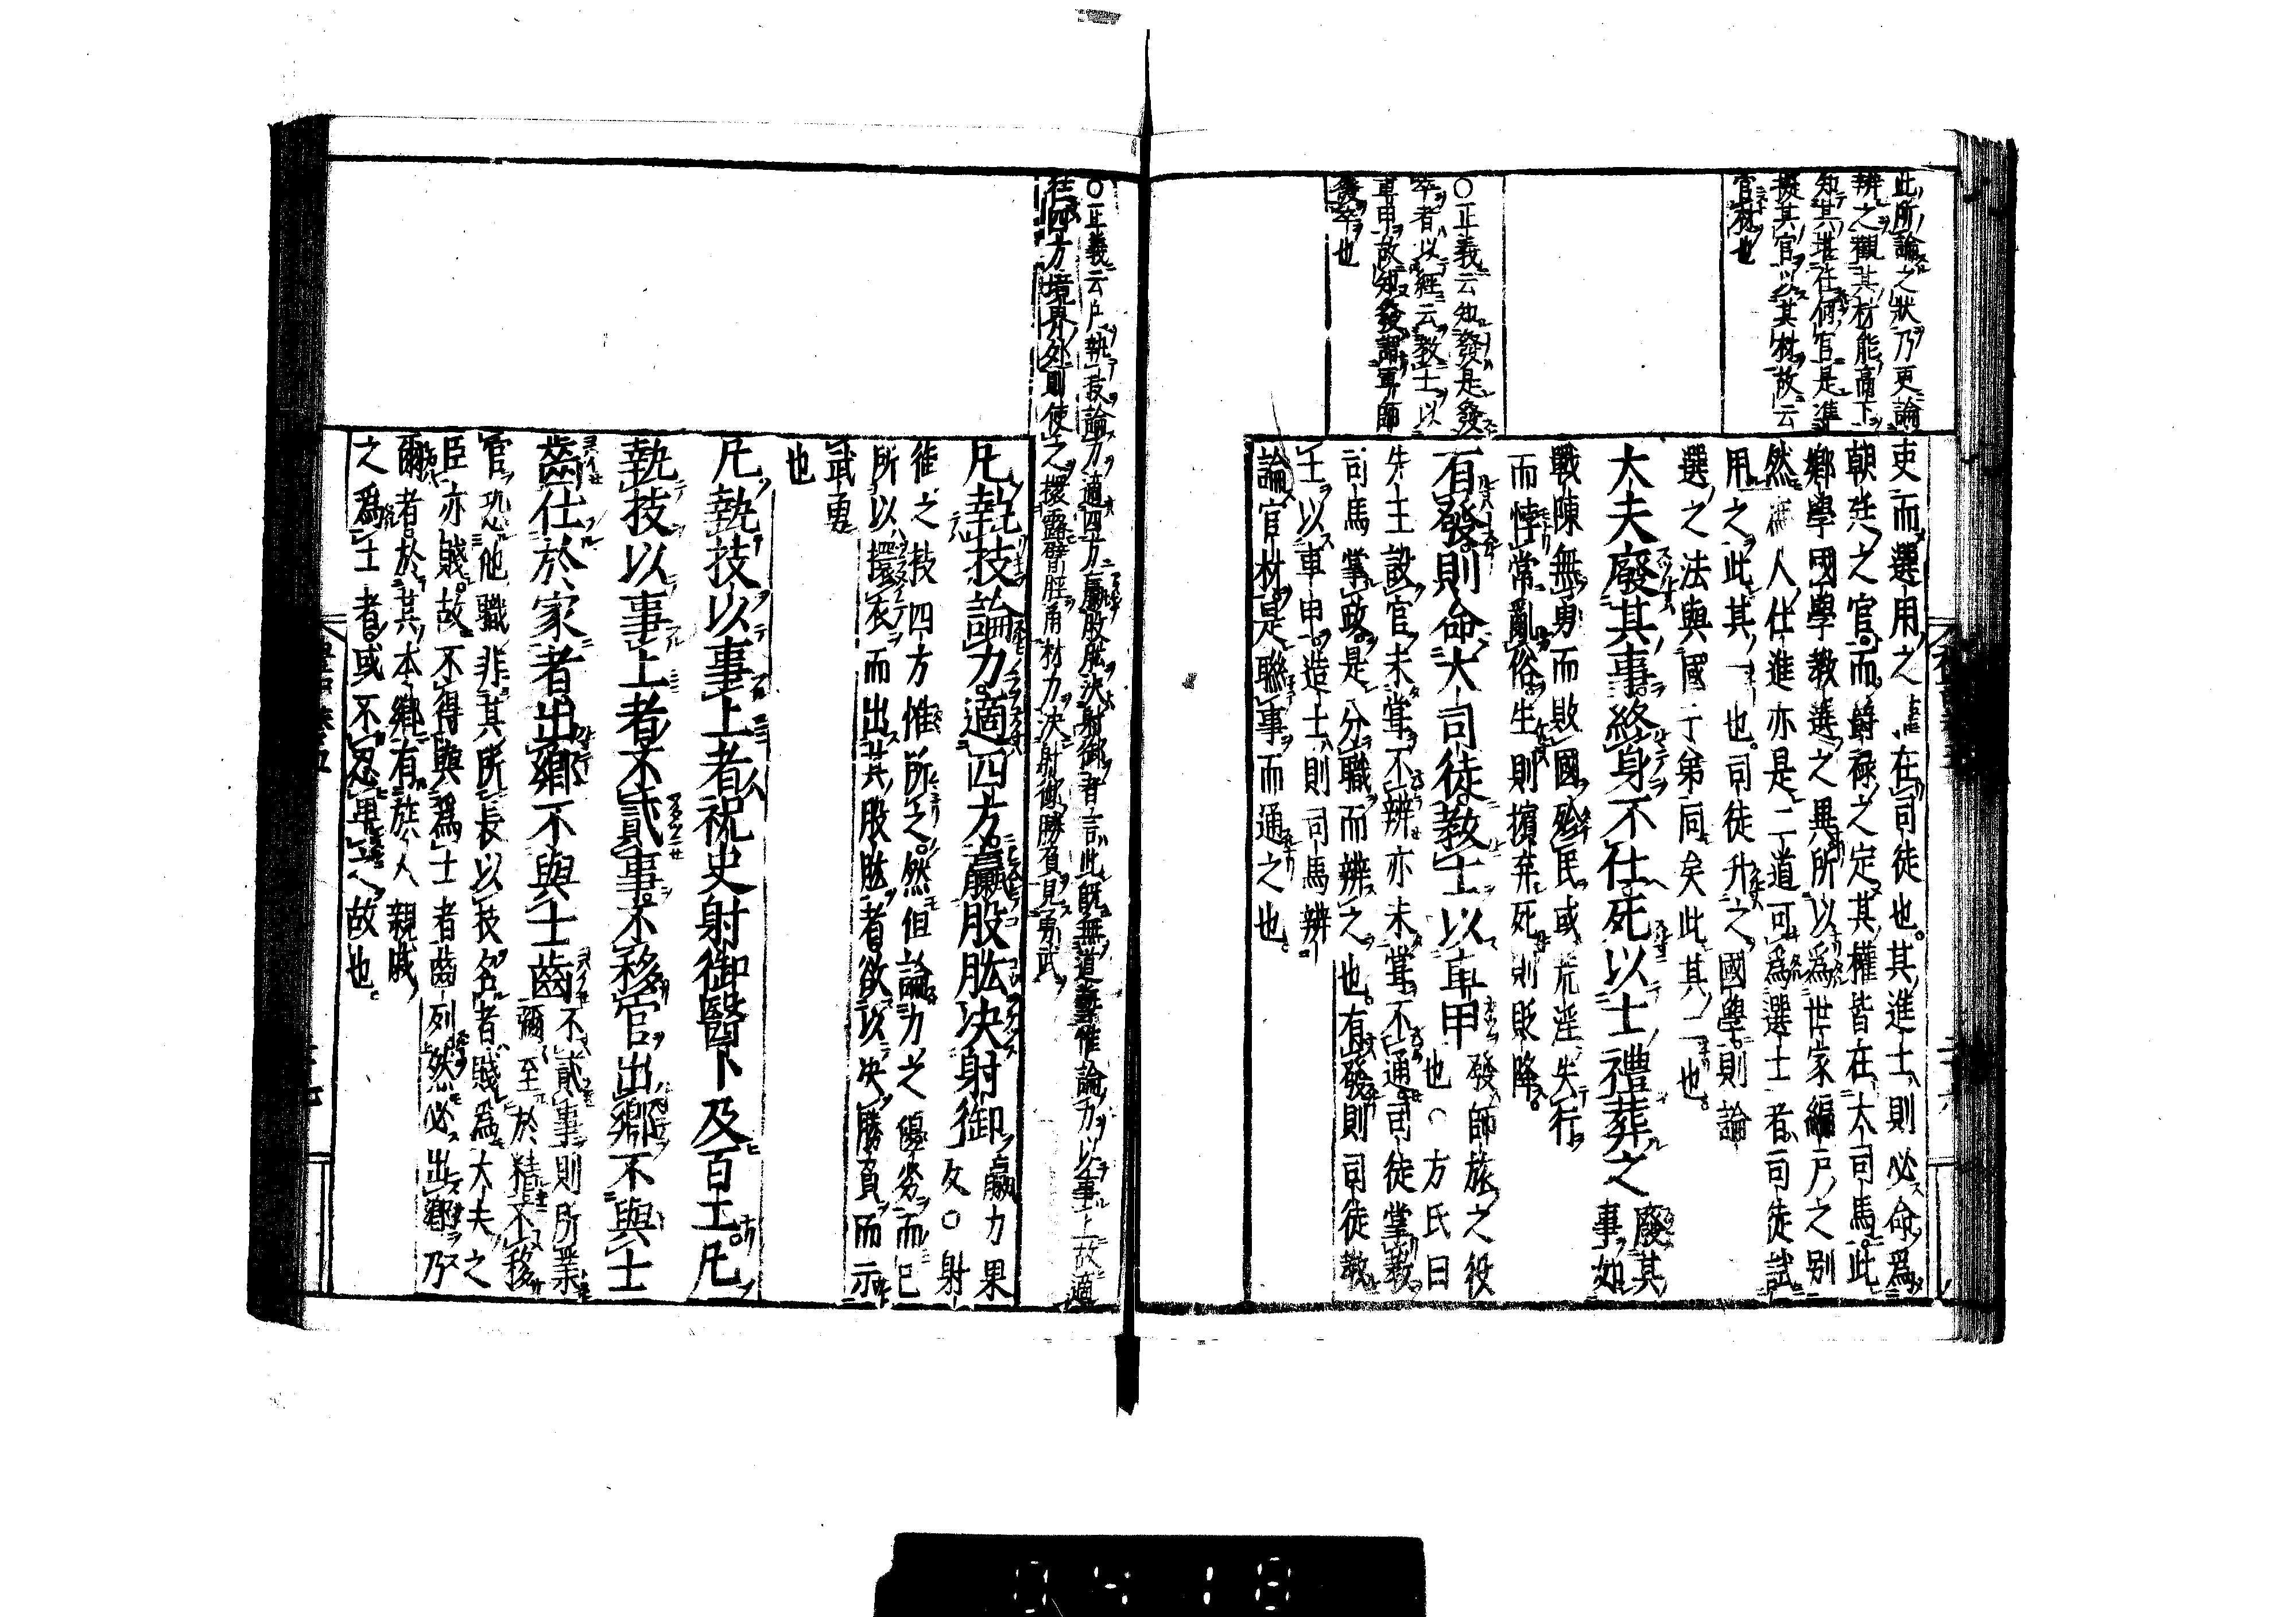 此所論之狀乃更論
辨之觀其材能高下
知其堪任何官是準
擬其官以其材故云
官材也
○正義云知發是發
卒者以經云教士以
車甲故知發謂軍師
發卒也
吏而選用之在司徒也其進士則必命爲
朝廷之官而爵祿之定其權皆在大司馬此
鄉學國學教選之異所以爲世家編戶之别
然人仕進亦是二道可爲選士者司徒試
用之此其一也司徒升之國學則論
選之法與國子弟同矣此其二也
大夫廢其事終身不仕死以士禮葬之
廢其
事如
戰陳無勇而敗國殄民或荒淫失行
而悖常亂俗生則擯弃死則貶降
有發則命大司徒教士以車甲
發師旅之役
也○方氏曰
先王設官未嘗不辨亦未嘗不通司徒掌教
司馬掌政是分職而辨之也有發則司徒教
士以車甲造士則司馬辨
論官材是聯事而通之也
○正義云尸執技論力適四方臝股肱決射御者言此既無道藝惟論力以事上故適
往四方境界外則使之擐露臂脛角材力决射御勝負見勇武
凡執技論力適四方臝股肱决射御
臝力果
反○射
徃之技四方惟所之然但論力之優劣而已
所以擐衣而出其股肱者欲以决勝負而示
武勇
也
凡執技以事上者祝史射御醫卜及百工凡
執技以事上者不貳事不移官出鄉不與士
齒仕於家者出鄉不與士齒
不貳事則所業
彌至於精不移
官恐他職非其所長以技名者賤爲大夫之
臣亦賤故不得與爲士者齒列然必出鄉乃
爾者於其本鄉有族人親戚
之爲士者或不忍卑之故也